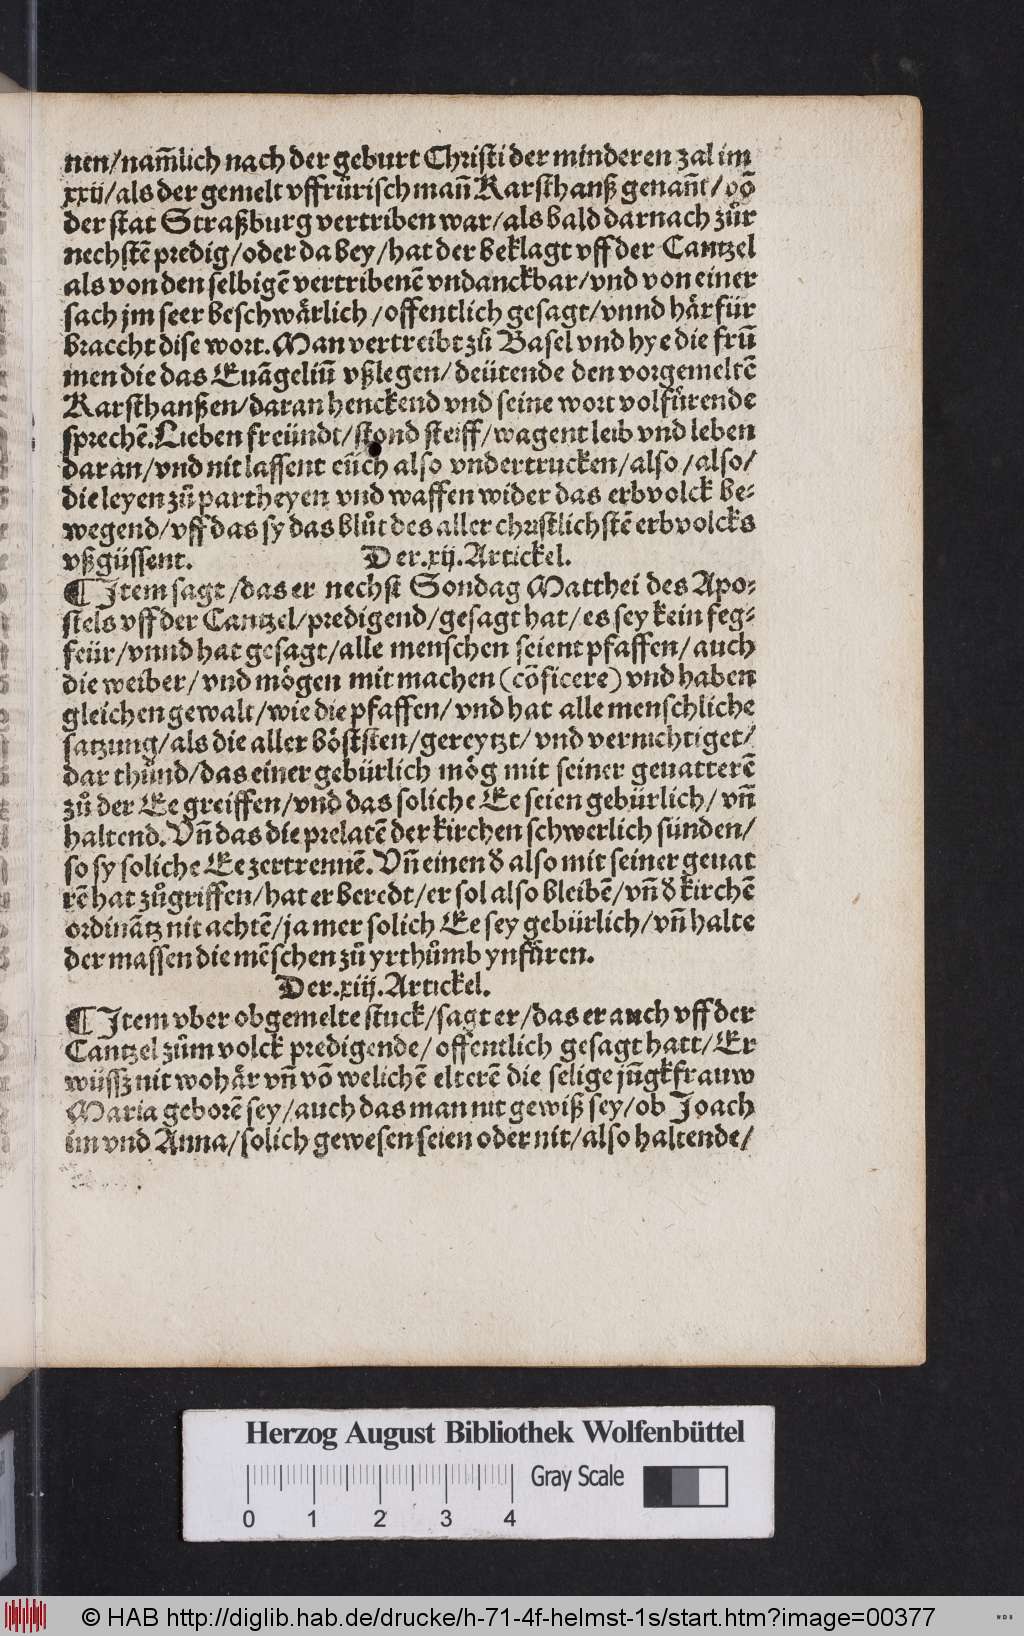 nen/nam̃lich nach der geburt Christi der minderen zal im
xxij/als der gemelt vffrürisch mañ Karsthanß genañt/võ
der stat Straßburg vertriben war/als bald darnach zůr
nechstẽ predig/oder da bey/hat der beklagt vff der Cantzel
als von den selbigẽ vertribenẽ vndanckbar/vnd von einer
sach jm seer beschwärlich/offentlich gesagt/vnnd härfür
braccht dise wort. Man vertreibt zů Basel vnd hye die frũ
men die das Euãgeliũ vßlegen/deütende den vorgemeltẽ
Karsthanßen/daran henckend vnd seine wort volfürende
sprechẽ. Lieben freündt/stond steiff/wagent leib vnd leben
daran/vnd nit lassent eüch also vndertrucken/also/also/
die leyen zů partheyen vnd waffen wider das erbvolck be⸗
wegend/vff das sy das blůt des aller christlichstẽ erbvolcks
vßgüssent. Der.xij.Artickel.
¶ Item sagt/das er nechst Sondag Matthei des Apo⸗
stels vff der Cantzel/predigend/gesagt hat/es sey kein feg⸗
feür/vnnd hat gesagt/alle menschen seient pfaffen/auch
die weiber/vnd mögen mit machen (cõficere) vnd haben
gleichen gewalt/wie die pfaffen/vnd hat alle menschliche
satzung/als die aller bösten/gereytzt/vnd vernichtiget/
dar thůnd/das einer gebürlich mög mit seiner geuatterẽ
zů der Ee greiffen/vnd das soliche Ee seien gebürlich/vñ
haltend. Vñ das die prelatẽ der kirchen schwerlich sünden/
so sy soliche Ee zertrennẽ. Vñ einen ð also mit seiner geuat
rẽ hat zůgriffen/hat er beredt/er sol also bleibẽ/vñ ð kirchẽ
ordinãtz nit achtẽ/ja mer solich Ee sey gebürlich/vñ halte
der massen die mẽschen zů yrthůmb ynfüren.
Der.xiij.Artickel.
¶ Item vber obgemelte stuck/sagt er/das er auch vff der
Cantzel zům volck predigende/offentlich gesagt hatt/Er
wüssz nit wohär vñ võ welichẽ elterẽ die selige jñgkfrauw
Maria geborẽ sey/auch das man nit gewiß sey/ob Joach
im vnd Anna/solich gewesen seien oder nit/also haltende/
Herzog August Bibliothek Wolfenbüttel
Gray Scale
0 1 2 3 4
© HAB http://diglib.hab.de/drucke/h-71-4f-helmst-1s/start.htm?image=00377